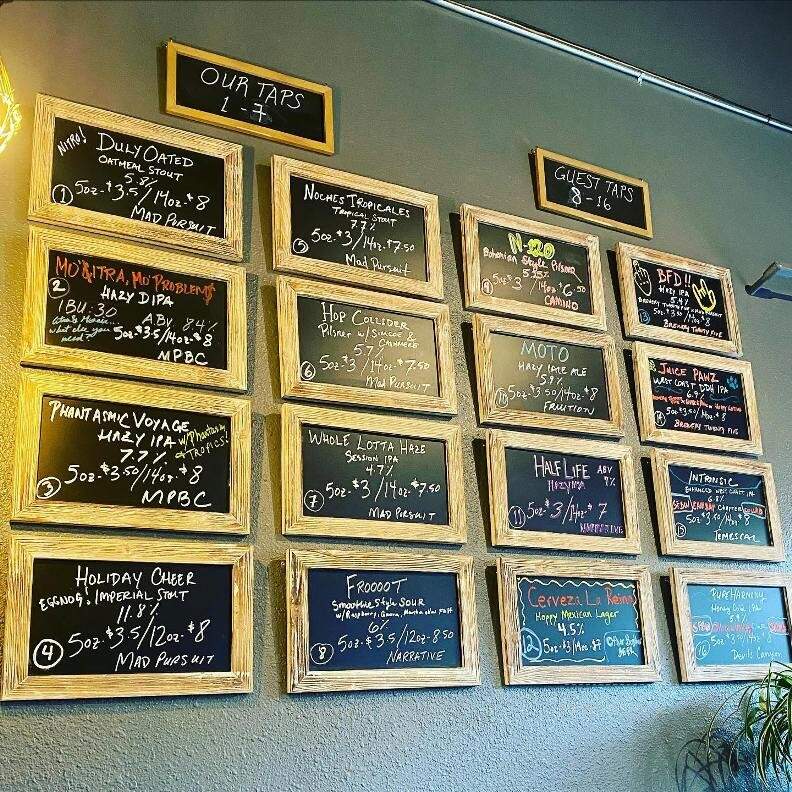 OUR TAPS
1 - 7
GUEST TAPS
8 - 16
NITRO!
DULY OATED
OATMEAL STOUT
5.8%
1 5oz-$3.5/14oz-$8
MAD PURSUIT
2 MO' CITRA, MO' PROBLEM$
HAZY DIPA
IBU: 30 ABV 8.4%
what else you
need?
5oz-$3.5/14oz-$8
MPBC
PHANTASMIC VOYAGE
HAZY IPA w/Phantasm
7.7% & TROPICS!
3 5oz-$3.50/14oz-$8
MPBC
HOLIDAY CHEER
EGGNOG! IMPERIAL STOUT
11.8%
4 5oz-$3.5/12oz-$8
MAD PURSUIT
NOCHES TROPICALES
TROPICAL STOUT
7.7%
5 5oz-$3/14oz-$7.50
Mad Pursuit
HOP COLLIDER
PILSNER w/ SIMCOE &
CASHMERE
5.7%
6 5oz-$3/14oz-$7.50
MAD PURSUIT
WHOLE LOTTA HAZE
SESSION IPA
4.7%
7 5oz-$3/14oz-$7.50
MAD PURSUIT
FROOOOT
Smoothie Style SOUR
w/Raspberry, Guava, Marshmallow Fluff
6%
8 5oz-$3.5/12oz-8.50
NARRATIVE
N-120
Bohemian Style Pilsner
5.25%
9 5oz-$3/14oz-$6.50
CAMINO
MOTO
HAZY PALE ALE
5.9%
10 5oz-$3.50/14oz-$8
FRUITION
HALF LIFE ABV
HAZY IPA 7%
11 5oz-$3/14oz-$7
Cerveza La Reina
Hoppy Mexican Lager
4.5%
12 5oz-$3/14oz-$7
BFD!!
HAZY IPA
5.4%
BREWERY TWENTY FIVE x MAD PURSUIT
13 5oz-$3.50/14oz-$8
BREWERY TWENTY FIVE
JUICE PAWZ
WEST COAST DDH IPA
6.9%
14 5oz-$3.50/14oz-$8
BREWERY TWENTY FIVE
INTRINSIC
ENHANCED WEST COAST IPA
6.8%
CHAPTER COLLAB
15 5oz-$3.50/14oz-$8
TEMESCAL
PURE HARMONY
5.9%
16 5oz-$3.50/14oz-$8
Devils Canyon